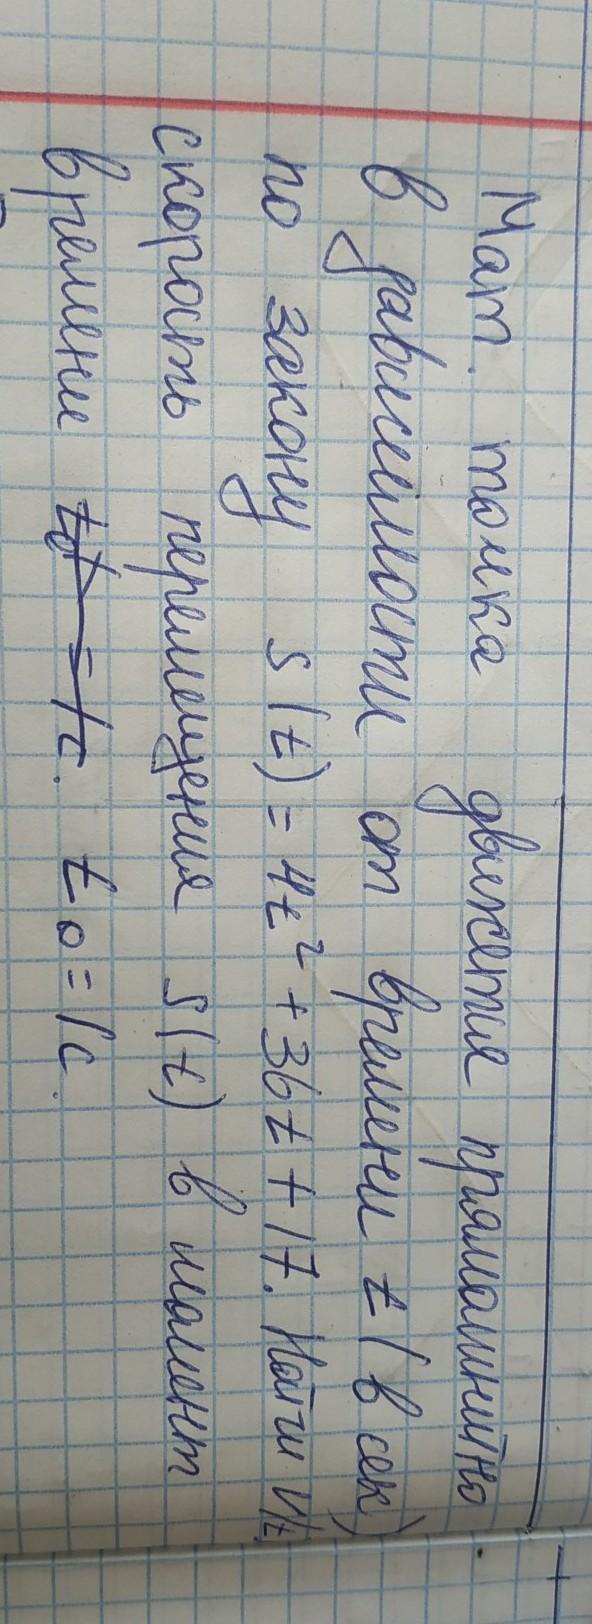 Мат. точка движется прямолинейно
в зависимости от времени t (в сек)
по закону S(t) = 4t² + 36t + 17. Найти
скорость перемещения S(t) в момент
времени t₀ = 1с.